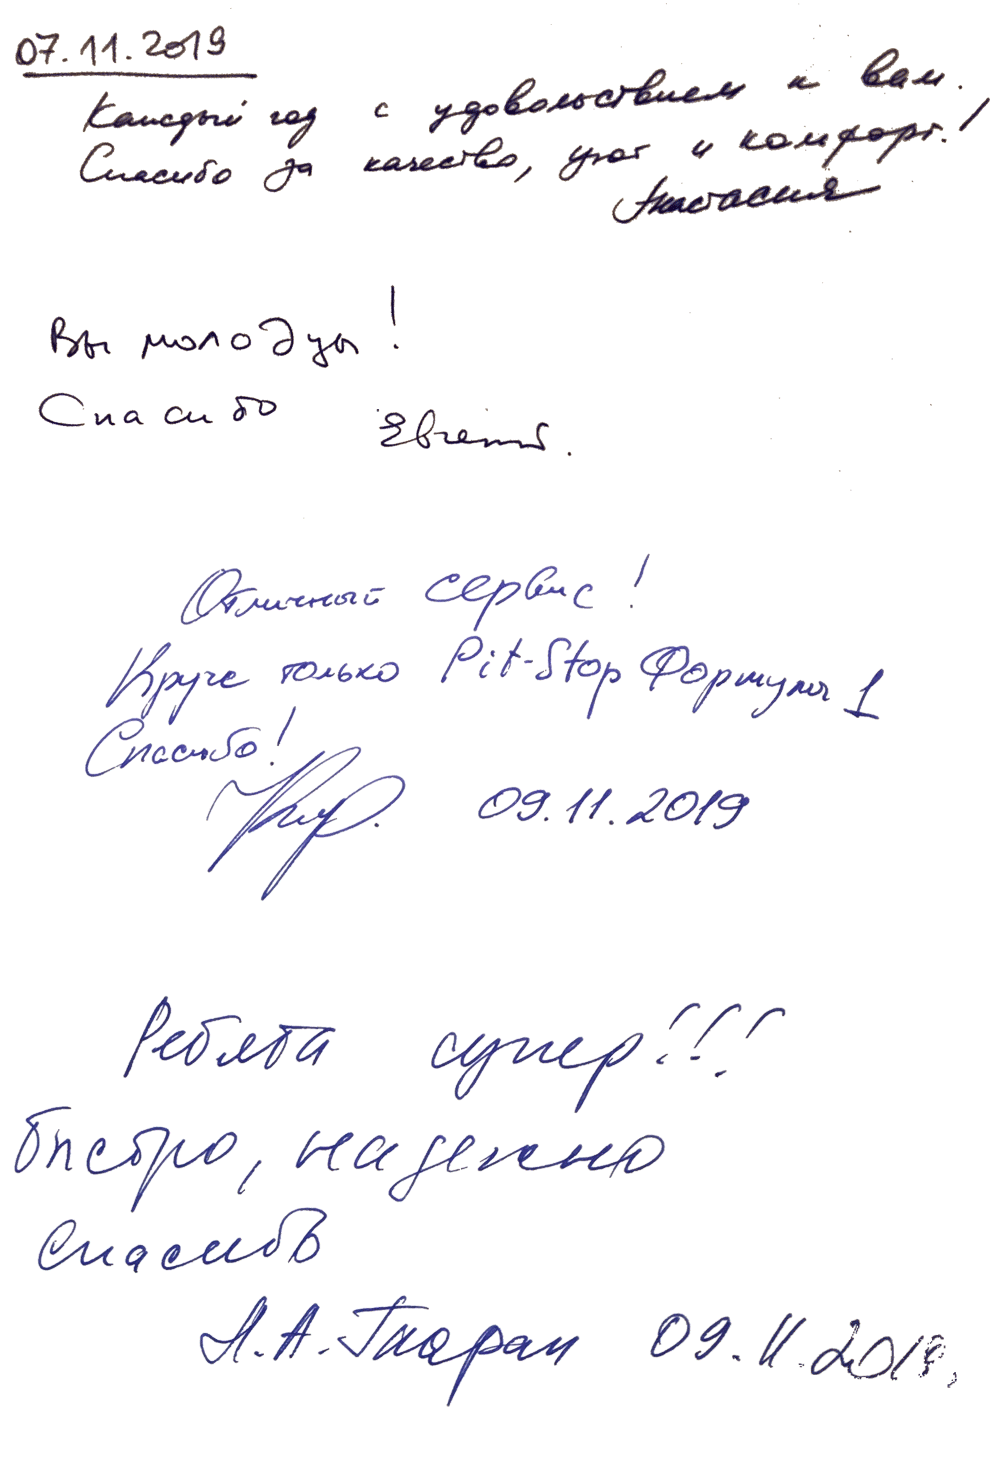 07.11.2019
Каждый год с удовольствием к вам.
Спасибо за качество, уют и комфорт!
Анастасия
Вы молодцы!
Спасибо Евгений.
Отличный сервис!
Круче только Pit-Stop Формулы 1
Спасибо!
09.11.2019
Ребята супер!!!
быстро, надежно
спасибо
А.
09.11.2019.